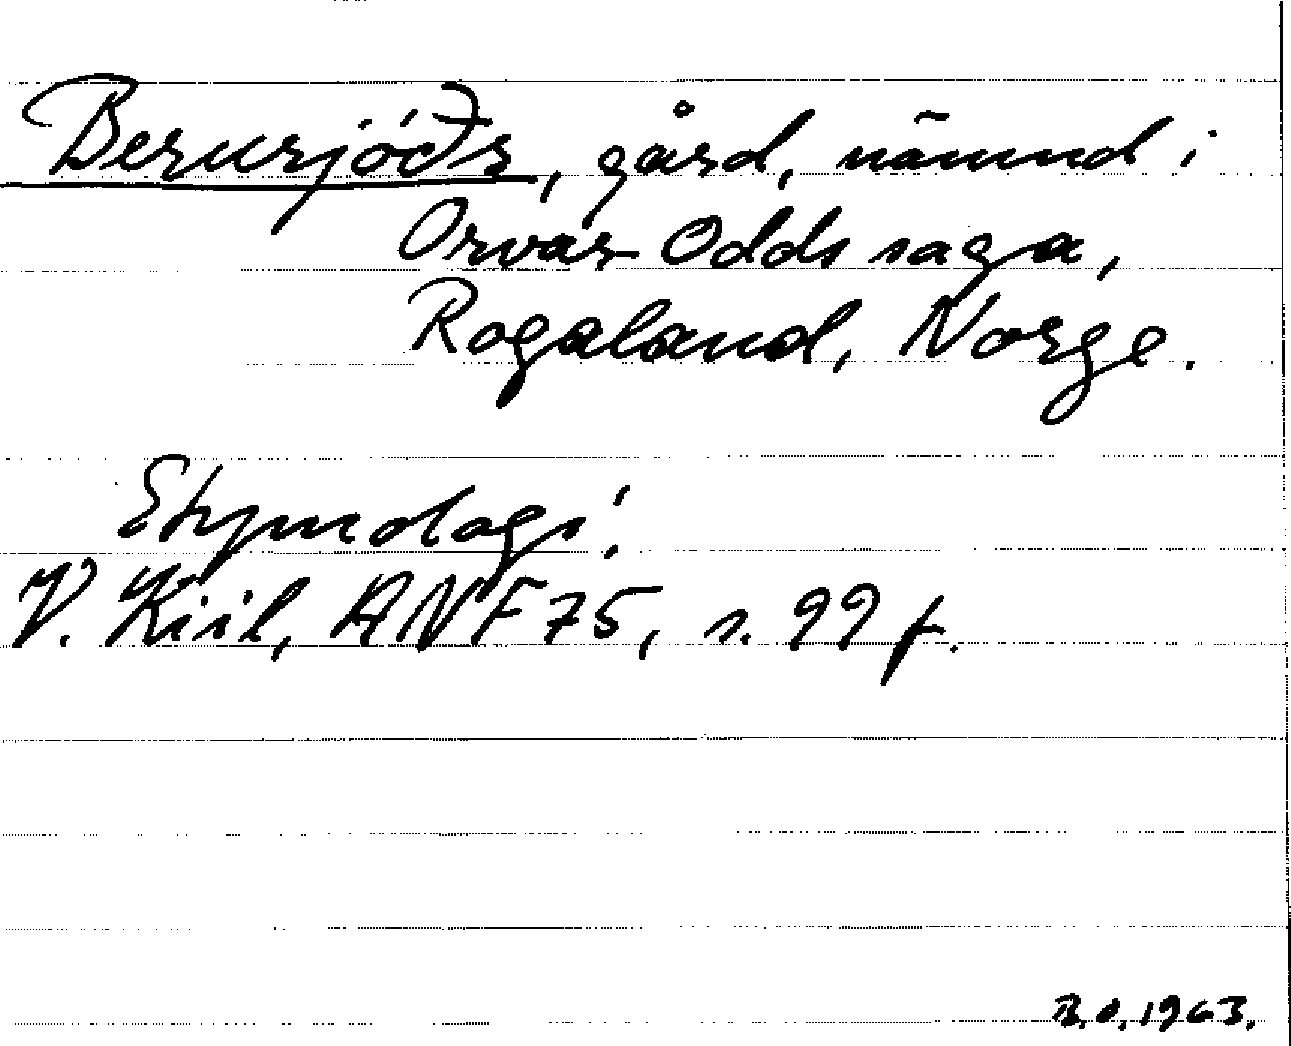 Berurjóðr, gård, nämnd i
Orvar-Odds saga,
Rogaland, Norge.
Etymologi:
V. Kiil, ANF 75, s. 99 f.
B.O. 1963.